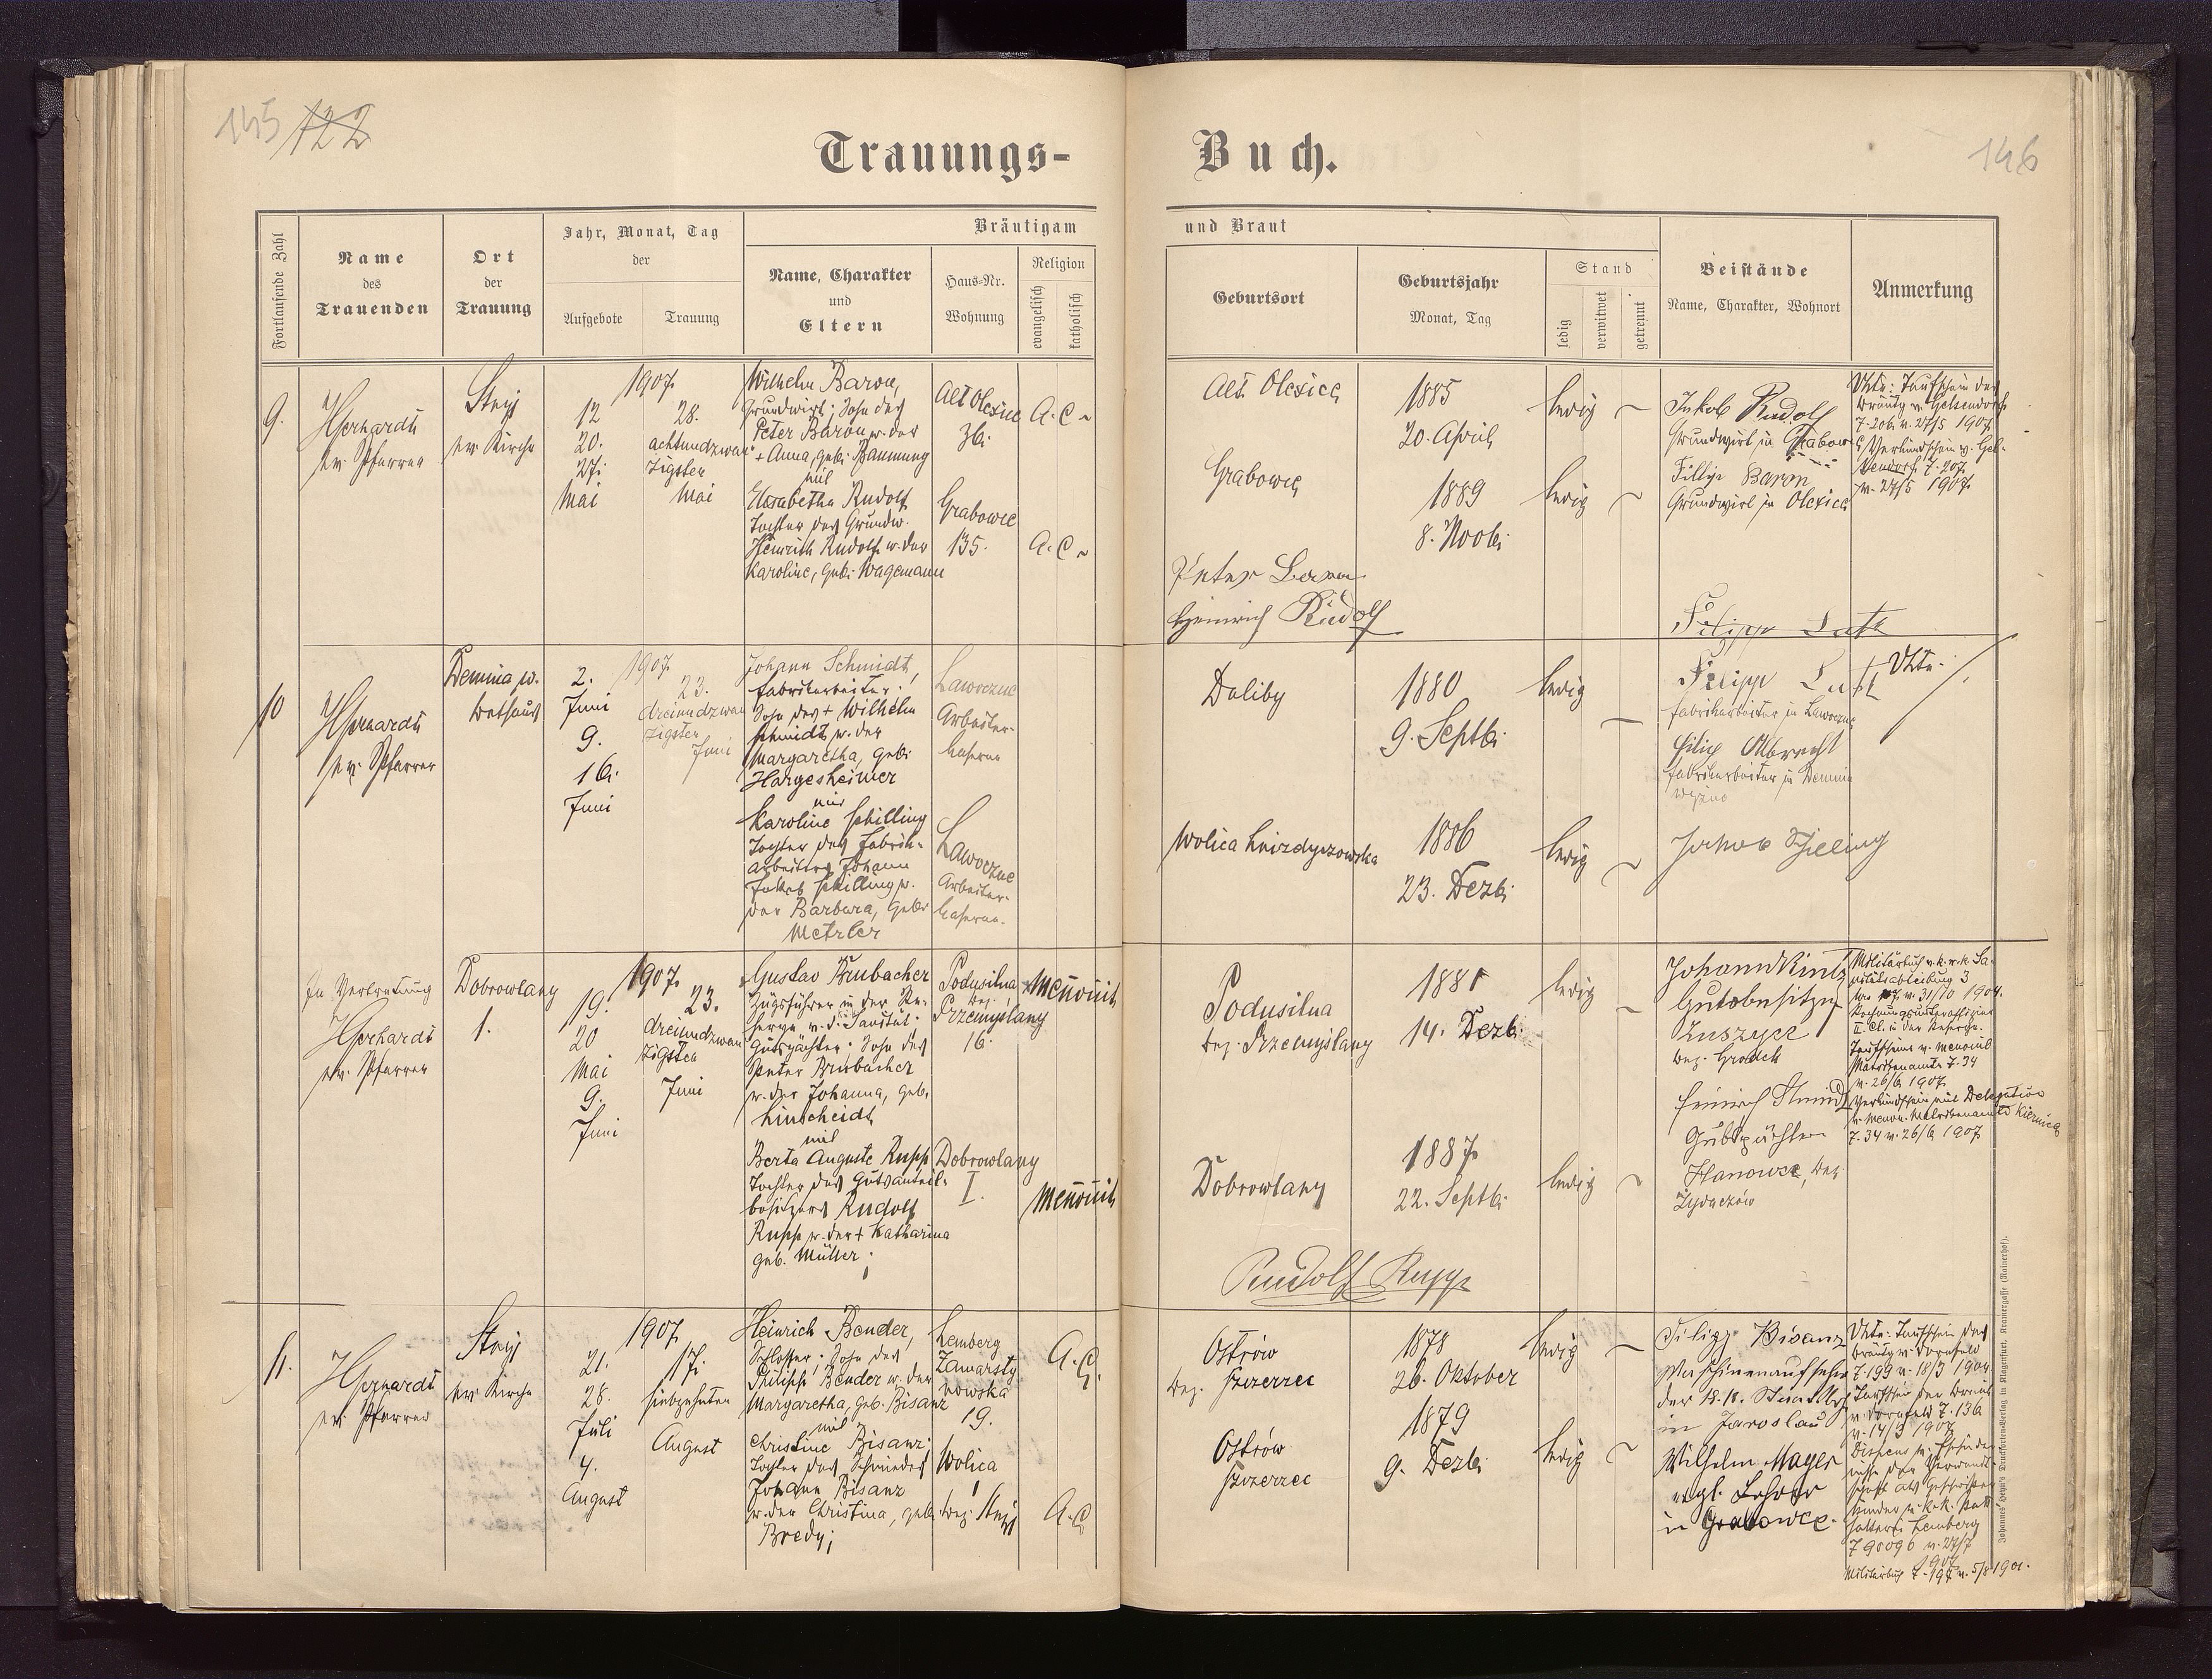 145 122
Trauungs-
Buch.
146
Fortlaufende Zahl
Name
des
Trauenden
Ort
der
Trauung
Jahr, Monat, Tag
der
Aufgebote
Trauung
Bräutigam
Name, Charakter
und
Eltern
Haus-Nr.
Wohnung
Religion
evangelisch
katholisch
und Braut
Geburtsort
Geburtsjahr
Monat, Tag
Stand
ledig
verwitwet
getrennt
Beistände
Name, Charakter, Wohnort
Anmerkung
9.
ev. Pfarrer
Stryj
ev. Kirche
1907.
12
20.
27.
Mai
28.
achtundzwan
zigsten
Mai
Wilhelm Baron,
Grundwirt; Sohn des
Peter Baron u. der
+ Anna, geb.
mit
Elisabetha Rudolf
Tochter des Grundw.
Heinrich Rudolf u. der
Karoline, geb. Wagemann
Alt Olexice
36.
Grabowce
135.
A. C.
A. C.
Alt Olexice
Grabowce
1885
20. April
1889
8. Novb.
ledig
ledig
Jakob Rudolf
Grundwirt in Grabowce
Filipp Baron
Grundwirt in Olexice
Taufschein des
Bräutg. v. Gelsendorf
Z. 206 v. 27/5 1907.
Verkündschein v. Gel-
sendorf Z. 207
v. 27/5 1907.
Peter Baron
Heinrich Rudolf
10
ev. Pfarrer
Demnia w.
Bethaus
1907.
2.
Juni
9.
16.
Juni
23.
dreiundzwan
zigsten
Juni
Johann Schmidt,
Fabriksarbeiter;
Sohn des + Wilhelm
Schmidt u. der
Margaretha, geb.
Hargesheimer
mit
Karoline Schilling
Tochter des Fabrik-
arbeiters Johann
Jakob Schilling u.
der Barbara, geb.
Metzler
Lawoczne
Arbeiter-
kaserne
Lawoczne
Arbeiter-
kaserne.
Daliby
Wolica hnizdyczowska
1880
9. Septb.
1886
23. Dezb.
ledig
ledig
Filipp
Fabriksarbeiter in Lawoczne
Filip Albrecht
Fabriksarbeiter in Demnia
wyżne
In Vertretung
ev. Pfarrer
Dobrowlany
1.
1907.
19.
20
Mai
9.
Juni
23.
dreiundzwan
zigsten
Juni
Gustav Brubacher
Zugsführer in der Re-
serve
Gutspächter; Sohn des
Peter Brubacher
u. der Johanna, geb.
Linscheidt
mit
Berta Auguste Rupp
Tochter des Gutsanteil-
besitzers Rudolf
Rupp u. der + Katharina
geb. Müller;
Podusilna
Bez.
Przemyślany
16.
Dobrowlany
I.
Mennonit
Mennonit
Podusilna
Bez. Przemyślany
Dobrowlany
1881
14. Dezb.
1887.
22. Septb.
ledig
ledig
Johann Kintz
Gutsbesitzer
Bez. Grodek
Gutspächter
Hanowce, Bez.
Żydaczów
v. 31/10 1904.
Rechnungsunteroffizier
II. Cl. in der Reserve.
Taufscheine v. Mennonit
Matrikenamte Z. 34
v. 26/6 1907.
Verkündschein mit Delegation
v. Menn. Matrikenamte Kiernica
Z. 34 v. 26/6 1907.
Rudolf Rupp
11.
ev. Pfarrer
Stryj
ev. Kirche
1907.
21.
28.
Juli
4.
August
17.
siebzehnten
August
Heinrich Bender,
Schlosser; Sohn des
Philipp Bender u. der
Margaretha, geb. Bisanz
mit
Christine Bisanz;
Tochter des Schmiedes
Johann Bisanz
u. der Christina, geb.
Bredy;
Lemberg
Zamarsty
nowska
19.
Wolica
Bez. Stryj
A. C.
A. C.
Ostrów
Bez. Szczerzec
Ostrów
Szczerzec
1878
26. Oktober
1879
9. Dezb.
ledig
ledig
Filipp Bisanz
Maschinenaufseher
in Jaroslau
Wilhelm Mayer
evgl. Lehrer
in Grabowce.
Taufschein des
Bräutg. v. Dornfeld
Z. 199 v. 18/3 1904.
Taufschein der Braut
v. Dornfeld Z. 136
v. 14/3 1907
Lemberg
Z 90096 v. 27/7
1907
Johannes Heyn's Druckforten-Verlag in Klagenfurt, Kramergasse (Rainerhof).